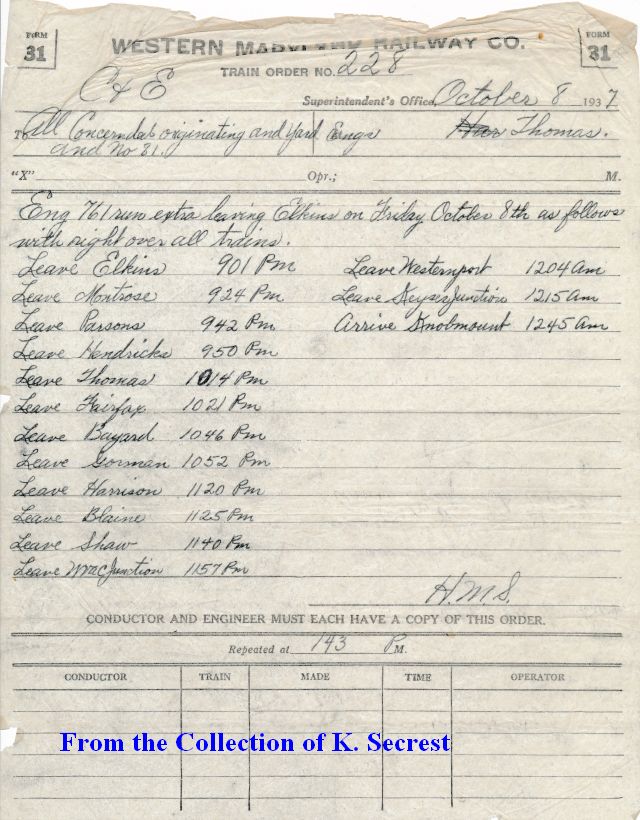 FORM 31
FORM 31
WESTERN MARYLAND RAILWAY CO.
TRAIN ORDER NO. 228
C & E
Superintendent's Office, October 8 1937
To All Concerned originating and yard Engs Thomas.
and No 81.
"X" Opr.; M.
Eng 761 run extra leaving Elkins on Friday October 8th as follows
with right over all trains.
Leave Elkins 901 Pm Leave Westernport 1204 am
Leave Montrose 924 Pm Leave Keyser Junction 1215 am
Leave Parsons 942 Pm Arrive Knobmount 1245 am
Leave Hendricks 950 Pm
Leave Thomas 1014 Pm
Leave Fairfax 1021 Pm
Leave Bayard 1046 Pm
Leave Gorman 1052 Pm
Leave Harrison 1120 Pm
Leave Blaine 1125 Pm
Leave Shaw 1140 Pm
Leave WVAC Junction 1157 Pm
H.M.S.
CONDUCTOR AND ENGINEER MUST EACH HAVE A COPY OF THIS ORDER.
Repeated at 143 P M.
CONDUCTOR TRAIN MADE TIME OPERATOR
From the Collection of K. Secrest